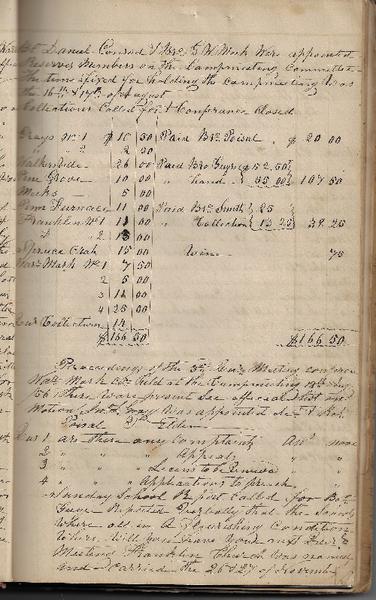 Daniel Conrad & Bro. G. W. Mark Were appointed
Preserves Members on the Campmeeting Committee
The time fixed for holding the Campmeeting was
the 16th & 17th of August
Collections Called for & Conferance Closed
Grays No 1 $ 10 50 Paid Bro. Poisal $ 20 00
" " 2 2 50
26 00 Paid Bro Guyer $ 52.50
Pine Grove 10 00 " hand 55 00 107 50
Meeks 5 00
Furnace 11 00 Paid Bro. Smith 25
Franklin No 1 11 00 " Collection 13 25 38 25
" 2 13 00
Spruce Crk 15 00 75
War. Mark No 1 7 50
2 5 00
3 14 00
4 25 00
Collection 14
$166 50 $166 50
Proceedings of the Qr. Meeting conference
War. Mark Cir. Held at the Campmeeting
56 There were present See official list upon
Motion Gray was appointed
Poisal Elder
Ques 1 are there any Complaints Ans none
2 " " " Appeals " "
3 " " Licens to be Renued " "
4 " " Applications to preach " "
Sunday School Report Called for Bro.
Guyer Reported Verbally that the Schools
Where all in A Flourishing Condition
Where Will you have your next Quar.
Meeting Franklin Church was named
and Carried the 26 & 27 of November